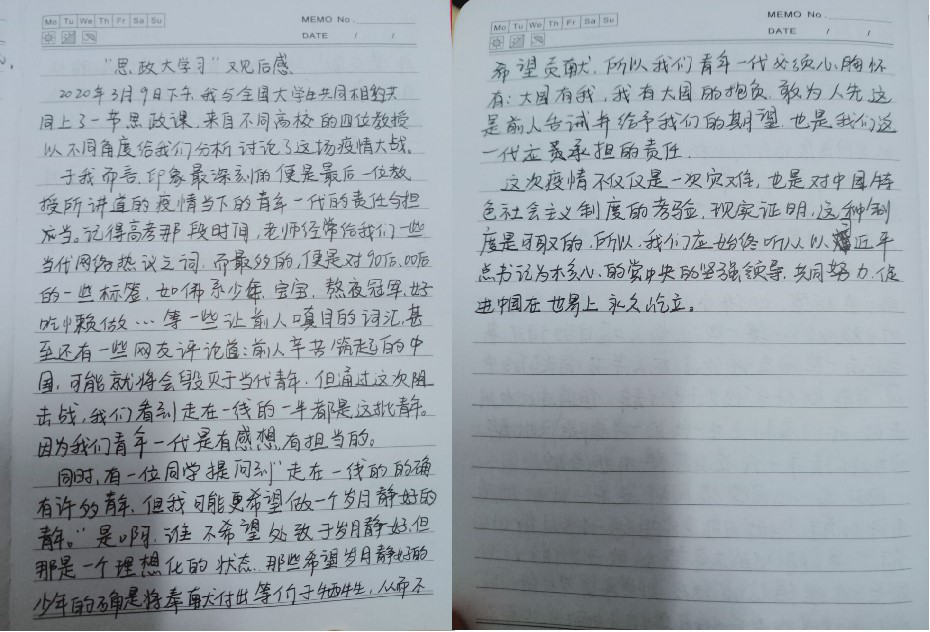 Mo Tu We Th Fr Sa Su
MEMO No.
DATE / /
"思政大学习"观后感
2020年3月9日下午,我与全国大学生共同相约共
同上了一节思政课。来自不同高校的四位教授
以不同角度给我们分析讨论了这场疫情大战。
于我而言,印象最深刻的便是最后一位教
授所讲道的疫情当下的青年一代的责任与担
当。记得高考那段时间,老师经常给我们一些
当代网络热议之词,而最多的,便是对90后、00后
的一些标签,如佛系少年,宝宝,熬夜冠军,好
吃懒做…等一些让前人嗔目的词汇,甚
至还有一些网友评论道:前人辛苦 起的中
国,可能就将会毁灭于当代青年,但通过这次阻
击战,我们看到走在一线的一半都是这批青年。
因为我们青年一代是有感想,有担当的。
同时,有一位同学提问到"走在一线的的确
有许多青年,但我可能更希望做一个岁月静好的
青年。"是啊,谁不希望处致于岁月静好,但
那是一个理想化的状态,那些希望岁月静好的
少年的确是将奉献付出等价于牺牲,从而不
Mo Tu We Th Fr Sa Su
MEMO No.
DATE / /
希望贡献,所以我们青年一代必须心胸怀
有:大国有我,我有大国的抱负,敢为人先,这
是前人告诫并给予我们的期望,也是我们这
一代应最承担的责任。
这次疫情不仅仅是一次灾难,也是对中国特
色社会主义制度的考验,现实证明,这种制
度是可取的,所以,我们应始终听从以习近平
总书记为核心的党中央的坚强领导,共同努力,促
进中国在世界上永久屹立。